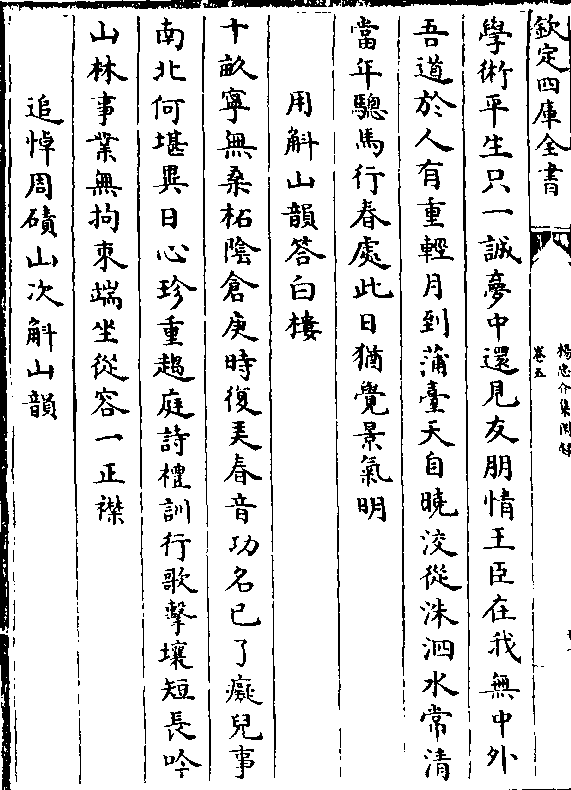 欽定四庫全書
楊忠介集附録
卷五
學術平生只一誠夢中還見友朋情王臣在我無中外
吾道於人有重輕月到蒲臺天自曉洨從洙泗水常清
當年驄馬行春處此日猶覺景氣明
用斛山韻答白樓
十畝寧無桑柘陰倉庚時復美春音功名已了癡兒事
南北何堪異日心珍重趨庭詩禮訓行歌擊壤短長吟
山林事業無拘束端坐從容一正襟
追悼周磧山次斛山韻